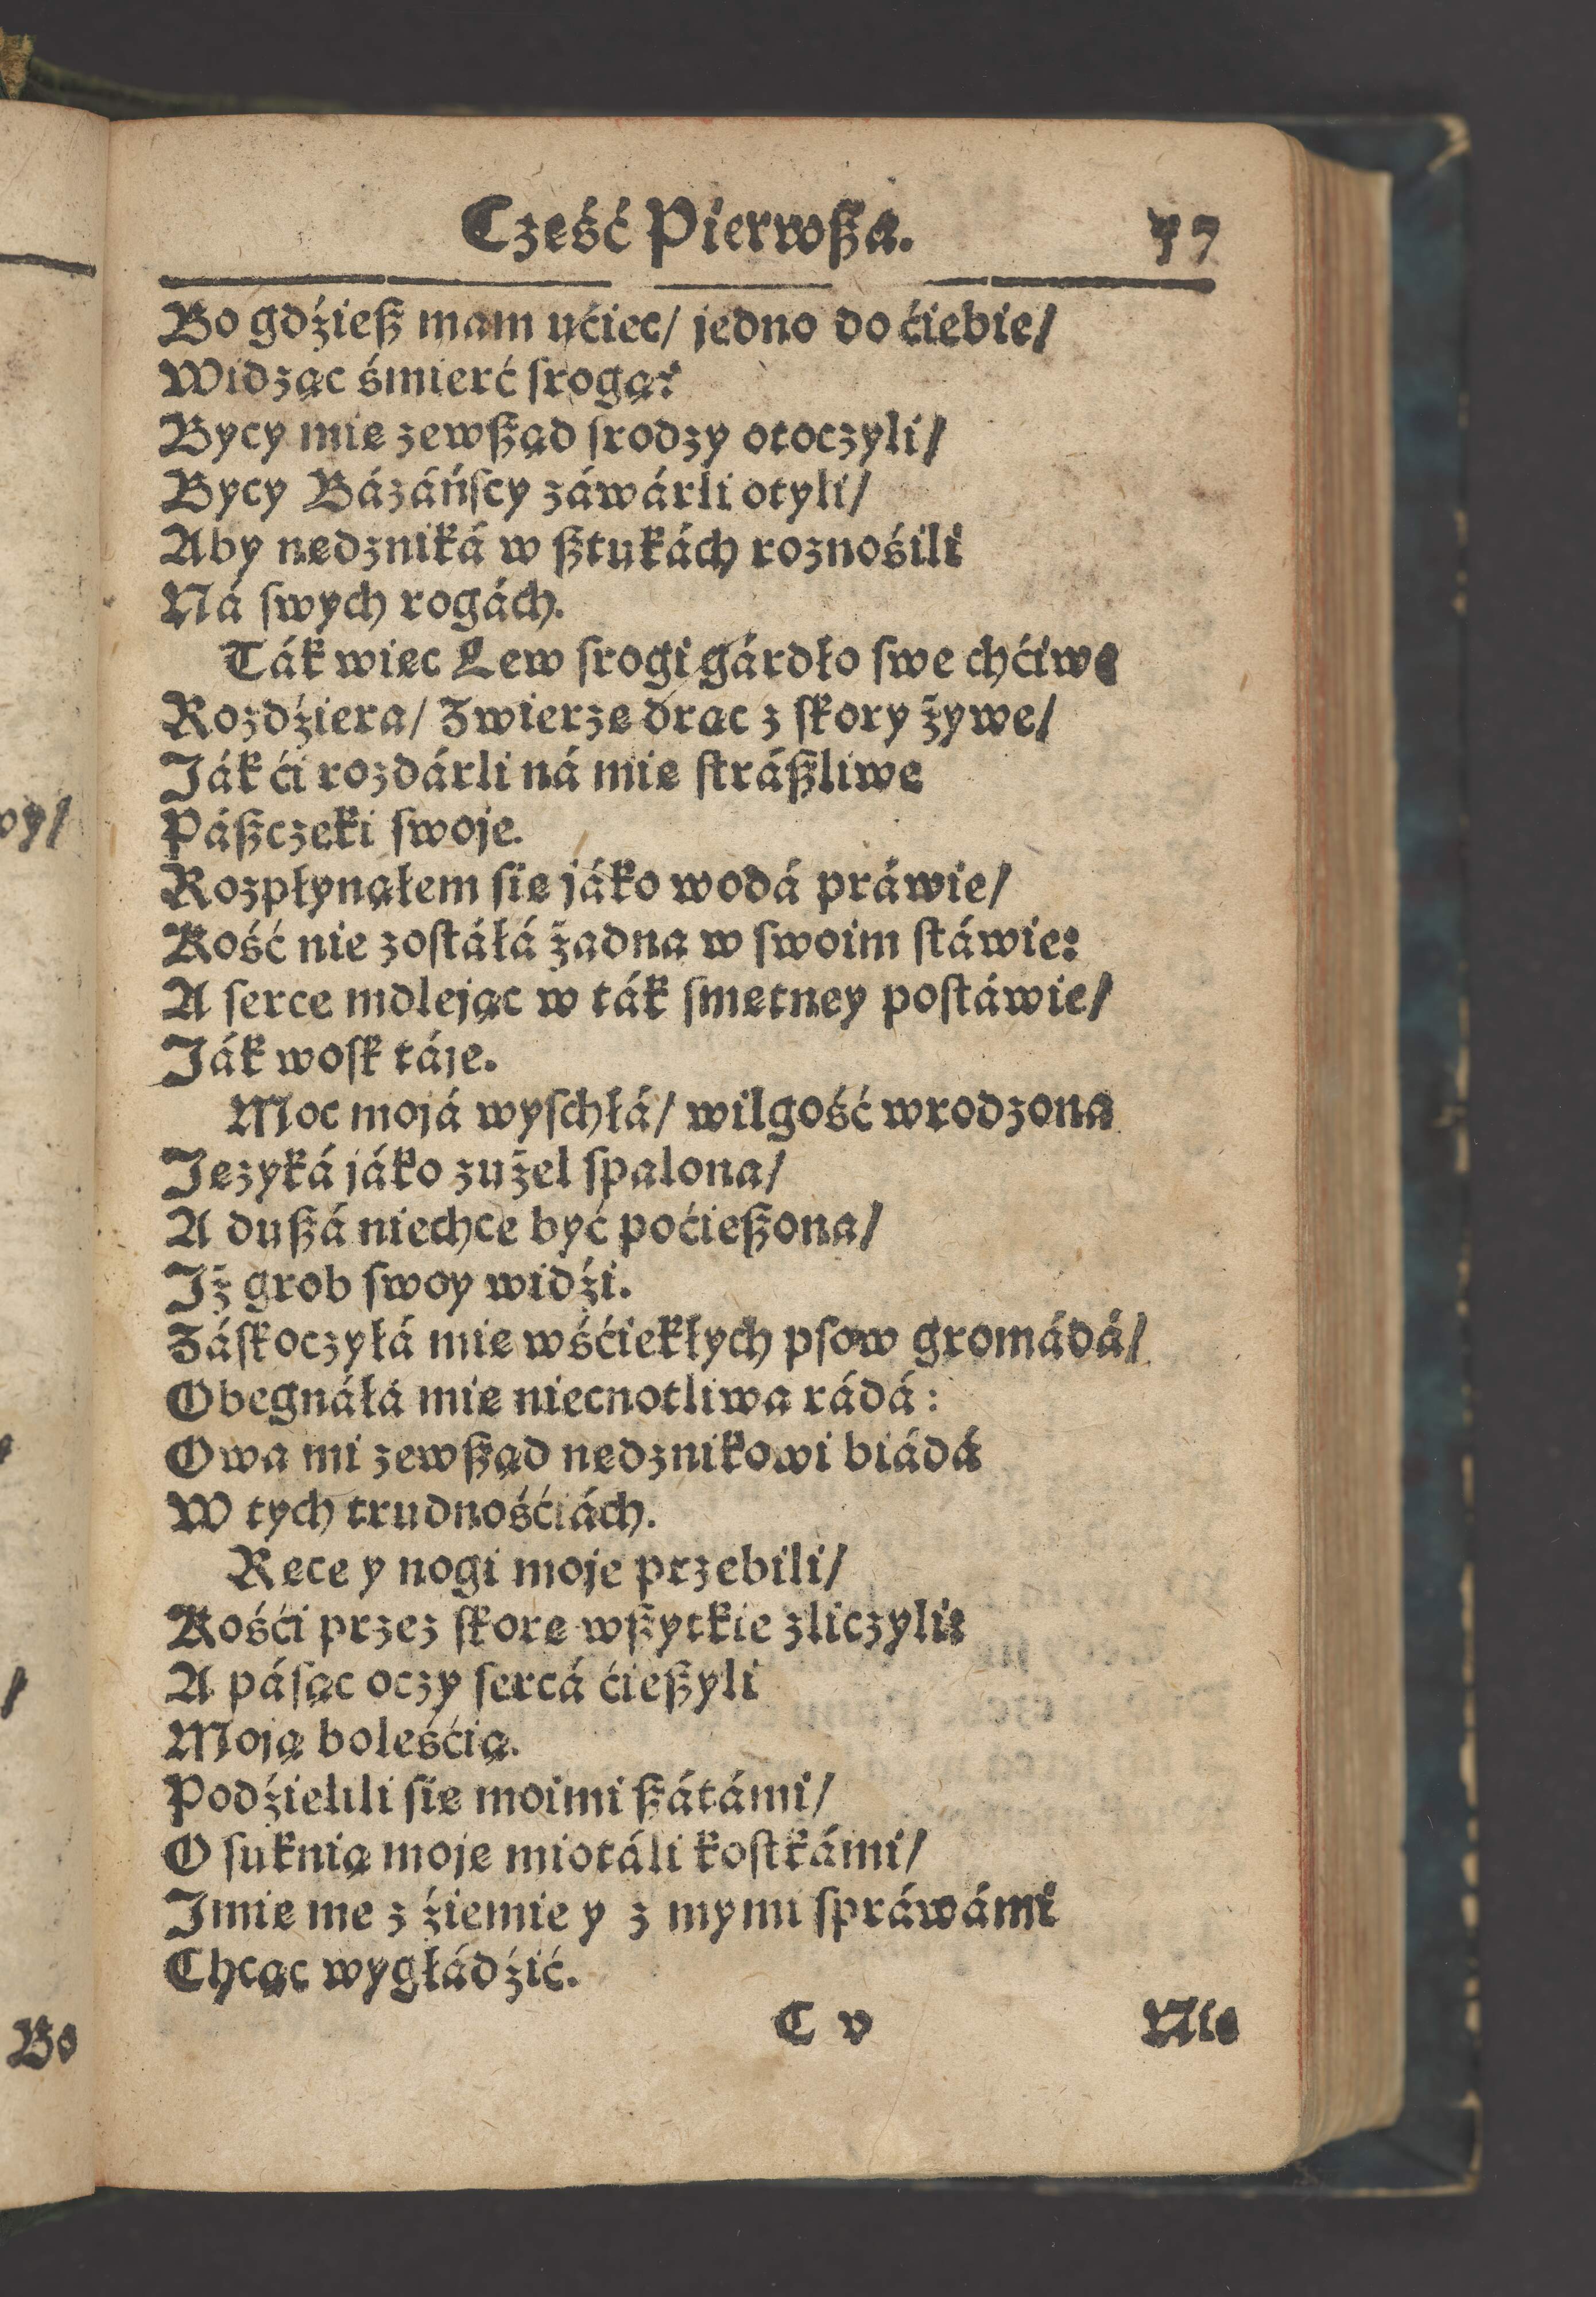 Cześć Pierwſza. 57
Bo gdźieſz mam ućiec/ jedno do ćiebie/
Widząc śmierć ſrogą?
Bycy mię zewſząd ſrodzy otoczyli/
Bycy Bázáńſcy záwárli otyli/
Aby nędzniká w ſztukách roznośili
Ná ſwych rogách.
Ták więc Lew ſrogi gárdło ſwe chćiwe
Rozdźiera/ Zwierzę drąc z ſkory żywe/
Ják ći rozdárli ná mię ſtráſzliwe
Páſzczęki ſwoje.
Rozpłynąłem ſię jáko wodá práwie/
Kość nie zoſtáłá żadna w ſwoim ſtáwie:
A ſerce mdlejąc w ták ſmętney poſtáwie/
Ják woſk táje.
Moc mojá wyſchłá/ wilgość wrodzona
Języká jáko zużel ſpalona/
A duſzá niechce być poćieſzona/
Jż grob ſwoy widźi.
Záſkoczyłá mię wśćiekłych pſow gromádá/
Obegnáłá mię niecnotliwa rádá:
Owa mi zewſząd nędznikowi biádá
W tych trudnośćiách.
Ręce y nogi moje przebili/
Kośći przez ſkorę wſzytkie zliczyli:
A páſąc oczy ſercá ćieſzyli
Moją boleśćią.
Podźielili ſię moimi ſzátámi/
O ſuknią moję miotáli koſtkámi/
Jmię me z źiemie y z mymi ſpráwámi
Chcąc wygłádźić.
C v Nie
wy/
/
Bo